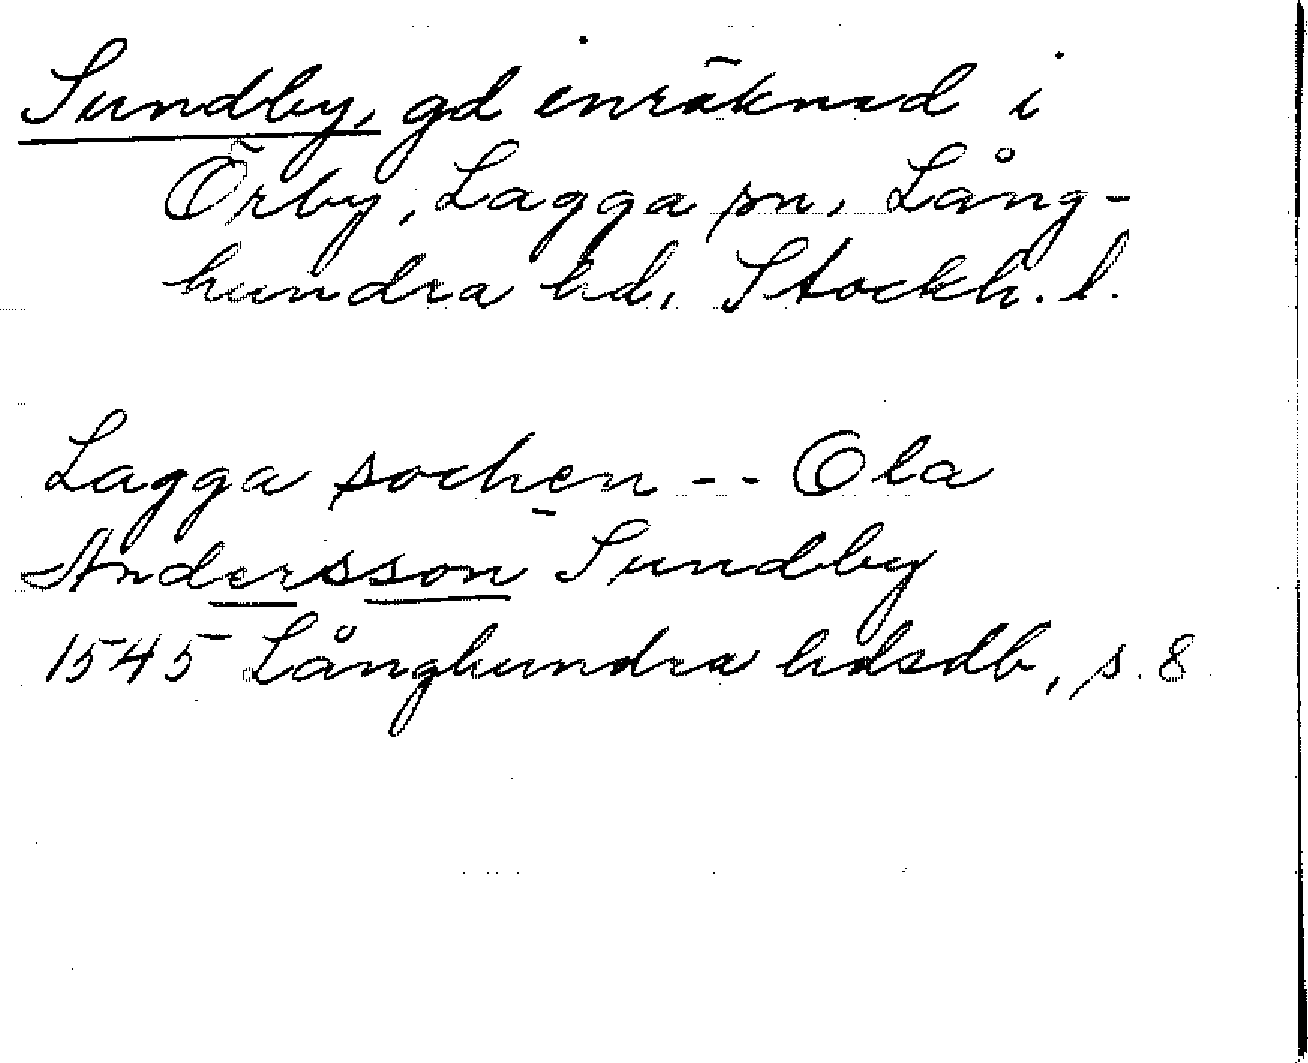 Sundby, gd inräknad i
Örby, Lagga sn, Lång-
hundra hd, Stockh. l.
Lagga sochen -- Ola
Andersson Sundby
1545 Långhundra hdsdb, s. 8